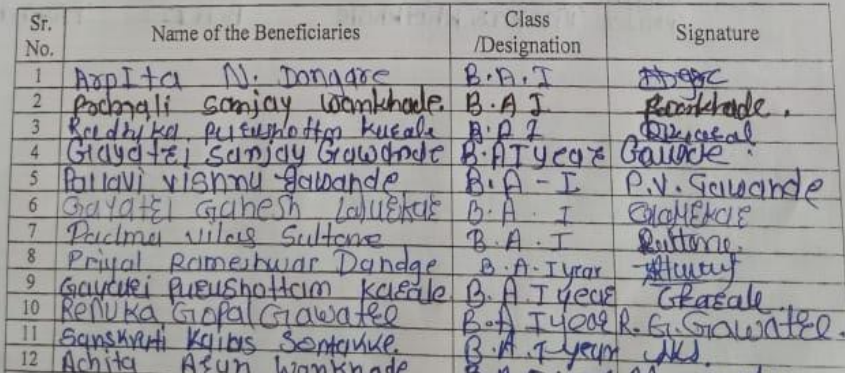 Sr. No. Name of the Beneficiaries Class /Designation Signature
1 ArpIta N. Dongare B.A.I
2 Sanjay Wankhade. B.A I Rwankhade.
3 Radhika Purushottam Kurale B.A I
4 Gayatri Sanjay Gawande B.A I year Gawade.
5 Pallavi Vishnu Gawande B.A - I P.V. Gawande
6 Gayatri Ganesh B.A. I
7 Padma Vilas Sultane B.A. I Sultane.
8 Priyal Rameshwar Dandge B.A. I year
9 Gayatri Purushottam Karale B.A I year Gkarale
10 Renuka Gopal Gawatre B.A I year R. G. Gawatre.
11 Sanskruti Kailas Sontakke. B.A. I year
12 Achita Arun Wankhade